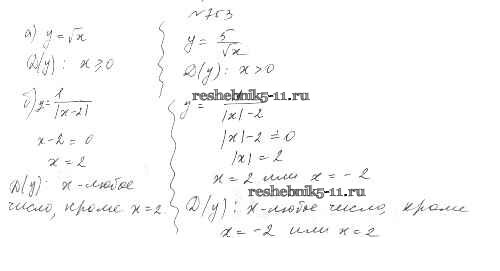 №753
а) y = √x
D(y): x ≥ 0
y = 5/√x
D(y): x > 0
reshebnik5-11.ru
б) y = 1/|x-2|
x-2 = 0
x = 2
D(y): x - любое
число, кроме x = 2
y = 1/|x|-2
|x|-2 = 0
|x| = 2
x = 2 или x = -2
reshebnik5-11.ru
D(y): x - любое число, кроме
x = -2 или x = 2